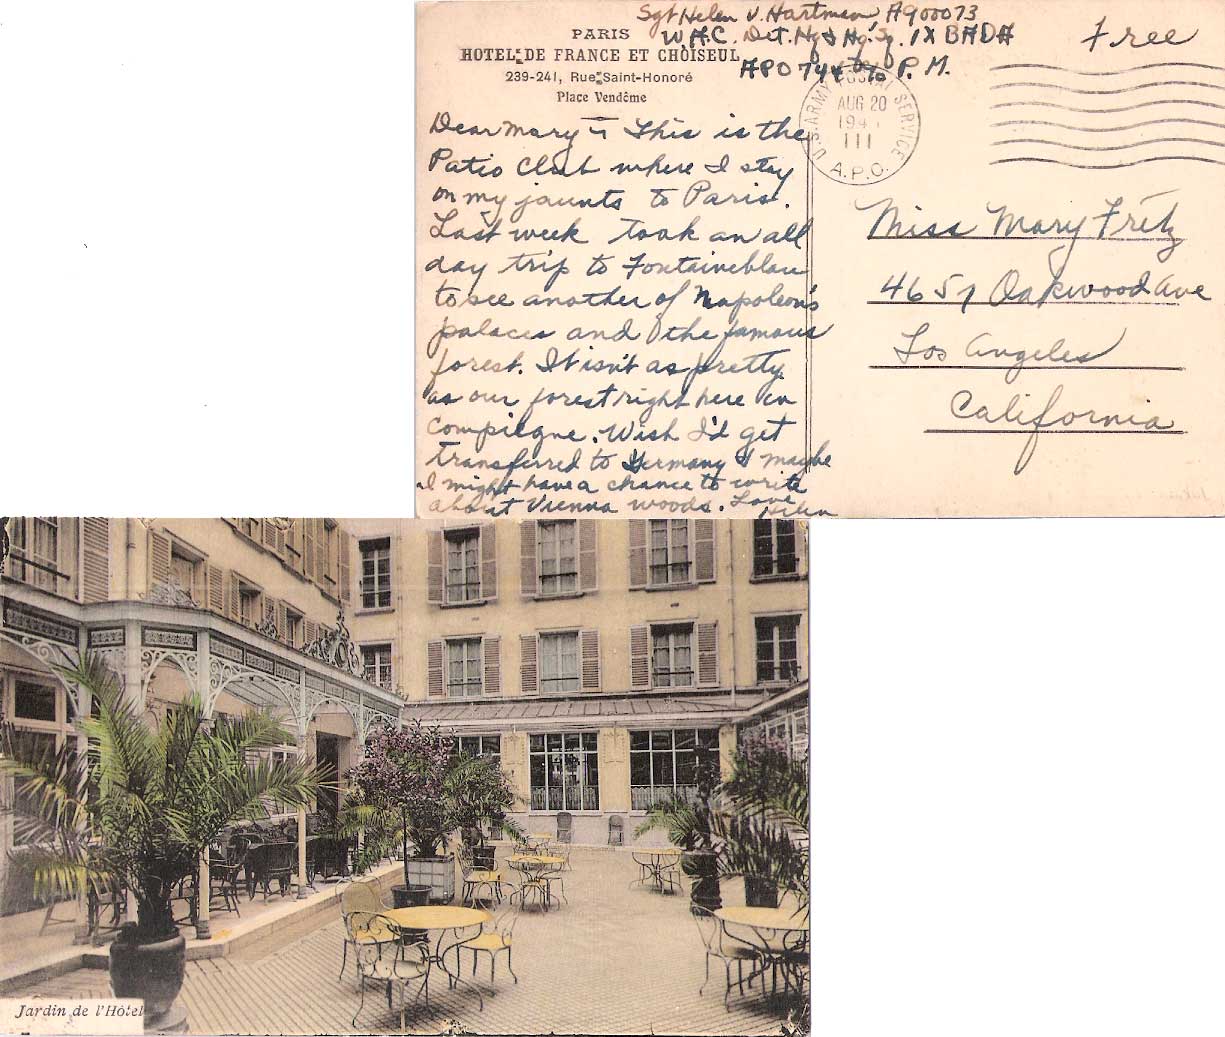 Sgt Helen V. Hartman A900073
W.A.C. Det. Hq & Hq. Sq. IX BADA
APO 744 % P.M.
Free
PARIS
HOTEL DE FRANCE ET CHOISEUL
239-241, Rue Saint-Honoré
Place Vendôme
U.S. ARMY POSTAL SERVICE
AUG 20
194
III
A.P.O.
Dear Mary – This is the
Patio Club where I stay
on my jaunts to Paris.
Last week took an all
day trip to Fontaineblau
to see another of Napoleon's
palaces and the famous
forest. It isn't as pretty
as our forest right here in
Compiegne. Wish I'd get
transferred to Germany & maybe
I might have a chance to write
about Vienna woods. Love,
Helen
Miss Mary Fretz
4657 Oakwood Ave
Los Angeles
California
Jardin de l'Hôtel